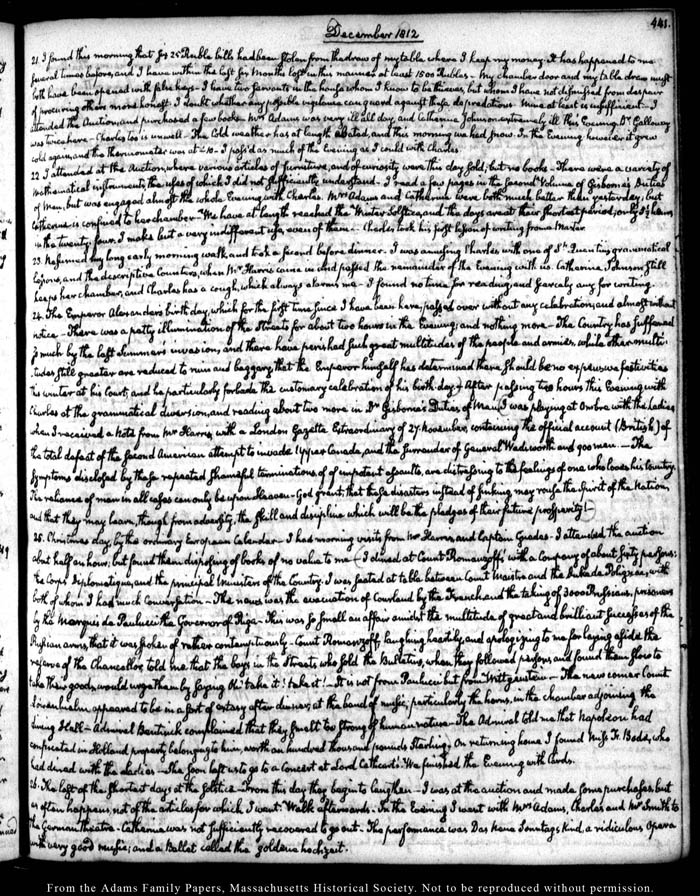 441.
December 1812
21. I found this morning that six 25 Rouble bills had been stolen from the draw of my table where I keep my money. It has happened to me
several times before, and I have within the last six Months lost in this manner at least 1500 Rubles — My chamber door and my table draw must
both have been opened with false keys — I have two servants in the house whom I know to be thieves, but whom I have not dismissed from despair
of procuring others more honest. I doubt whether any possible vigilance can guard against these depredations. Mine at least is insufficient — I
attended the Auction, and purchased a few books. Mrs Adams was very ill all day, and Catherine Johnson extremely ill this Evening. Dr Galloway
was twice here — Charles too is unwell. The Cold weather has at length abated, and this morning we had snow. In the Evening however it grew
cold again, and the Thermometer was at — I pass'd as much of the Evening as I could with Charles
22. I attended at the Auction, where various articles of furniture, and of curiosity were this day sold; but no books — There were a variety of
Mathematical instruments, the uses of which I did not sufficiently understand — I read a few pages in the second Volume of Gisborne's Duties
of Man, but was engaged almost the whole Evening with Charles. Mrs Adams and Catherine were both much better than yesterday; but
Catherine is confined to her chamber — We have at length reached the Winter Solstice, and the days are at their shortest period; only 5½ hours
in the twenty-four. I make but a very indifferent use, even of them. Charles took his first lesson of writing from a Master
23. Resumed my long early morning walk, and took a second before dinner. I was amusing Charles with one of grammatical
and the descriptive Counters, when Mr Harris came in and passed the remainder of the Evening with us. Catherine Johnson still
keeps her chamber, and Charles has a cough, which always alarms me — I found no time for reading, and scarcely any for writing
24. The Emperor Alexander's birth day, which for the first time since I have been here, passed over without any celebration, and almost without
notice — There was a petty illumination of the Streets for about two hours in the Evening, and nothing more — The Country has suffered
so much by the last Summer's invasion, and there have perished such great multitudes of the people and armies, while other multi-
tudes still greater are reduced to ruin and beggary, that the Emperor himself has determined there should be no expensive festivities
this winter at his Court, and he particularly forbade the customary celebration of his birth day — After passing two hours this Evening with
Charles at the grammatical diversion, and reading about two more in Dr Gisborne's Duties of Man, I was playing at Ombre with the Ladies
when I received a Note from Mr Harris, with a London Gazette Extraordinary of 27 November, containing the official account (British) of
the total defeat of the second American attempt to invade Upper Canada, and the surrender of General Wadsworth and 900 men. — The
symptoms disclosed by these repeated shameful terminations of impotent assaults, are distressing to the feelings of one who loves his Country.
The reliance of man in all cases can only be upon Heaven — God grant, that these disasters instead of sinking may rouse the Spirit of the Nation,
and that they may learn, though from adversity, the skill and discipline which will be the pledges of their future prosperity! —
25. Christmas day, by the ordinary European Calendar — I had morning visits from Mr Harris, and Captain Guades — I attended the auction
about half an hour, but found them disposing of books of no value to me — I dined at Count Romanzoff's, with a Company of about sixty persons;
the Corps Diplomatique, and the principal Ministers of the Country. I was seated at table between Count Maistre and the Duke de Polignac, with
both of whom I had much Conversation — The news was the evacuation of Courland by the French, and the taking of 3000 Prussians, prisoners
by the Marquis de Paulucci the Governor of Riga — This was so small an affair amidst the multitude of great and brilliant successes of the
Russian arms, that it was spoken of rather contemptuously — Count Romanzoff laughing heartily, and apologizing to me for laying aside the
reserve of the Chancellor, told me that the boys in the Streets who sold the Bulletins, when they followed persons, and found them slow to
take their goods, would urge them by saying Oh! take it! take it! — It is not from Paulucci but from Wittgenstein — The new comer Count
appeared to be in a sort of extasy after dinner, at the band of music, particularly the horns, in the chamber adjoining the
dining Hall — Admiral Bentinck complained that they smelt too strong of human nature — The Admiral told me that Napoleon had
confiscated in Holland property belonging to him, worth an hundred thousand pounds Sterling. On returning home I found Miss Fr. Bode, who
had dined with the Ladies — She soon left us to go to a Concert at Lord Cathcart's. We finished the Evening with Cards.
26. The last of the shortest days at the Solstice — From this day they begin to lengthen — I was at the auction and made some purchases, but
as often happens, not of the articles for which I went. Walk afterwards. In the Evening I went with Mrs Adams, Charles and Mr Smith to
the German Theatre — Catherine was not sufficiently recovered to go out. The performance was Das Neue Sonntags Kind, a ridiculous Opera
with very good music; and a Ballet called the goldene hochzeit.
From the Adams Family Papers, Massachusetts Historical Society. Not to be reproduced without permission.